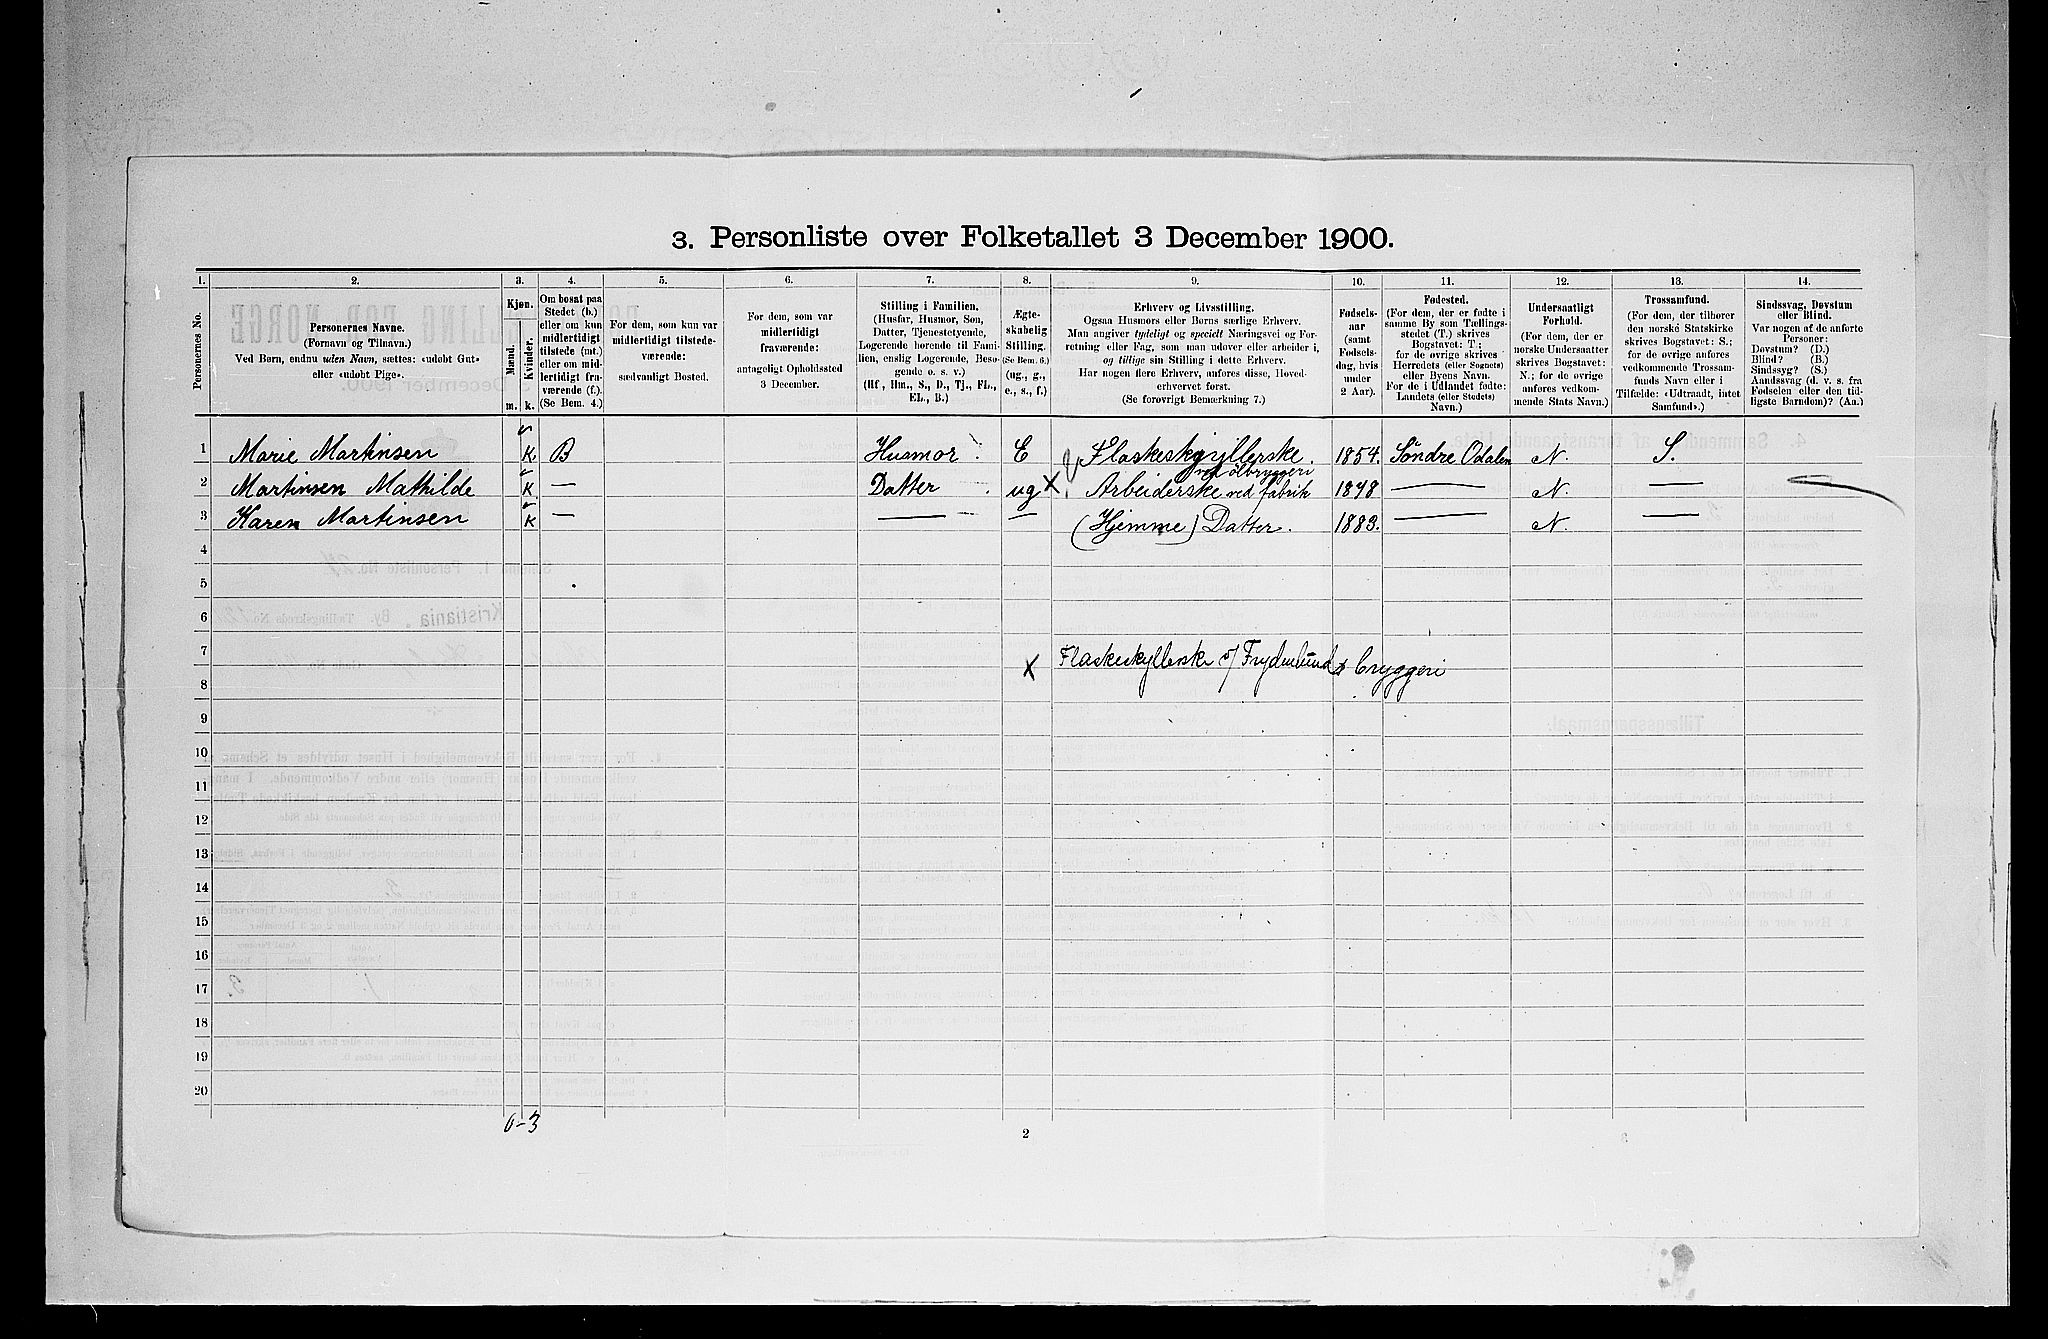 3. Personliste over Folketallet 3 December 1900.
1. 2. 3. 4. 5. 6. 7. 8. 9. 10. 11. 12. 13. 14.
Personernes No.
Personernes Navne.
(Fornavn og Tilnavn.)
Ved Børn, endnu uden Navn, sættes: «udøbt Gut»
eller «udøbt Pige».
Kjøn.
Mænd.
Kvinder.
m. k.
Om bosat paa
Stedet (b.)
eller om kun
midlertidigt
tilstede (mt.)
eller om mid-
lertidigt fra-
værende (f.).
(Se Bem. 4.)
For dem, som kun var
midlertidigt tilstede-
værende:
sædvanligt Bosted.
For dem, som var
midlertidigt
fraværende:
antageligt Opholdssted
3 December.
Stilling i Familien.
(Husfar, Husmor, Søn,
Datter, Tjenestetyende,
Logerende hørende til Fami-
lien, enslig Logerende, Besø-
gende o. s. v.)
(Hf, Hm., S., D., Tj., FL.,
EL., B.)
Ægte-
skabelig
Stilling.
(Se Bem. 6.)
(ug., g.,
e., s., f.)
Erhverv og Livsstilling.
Ogsaa Husmors eller Børns særlige Erhverv.
Man angiver tydeligt og specielt Næringsvei og For-
retning eller Fag, som man udøver eller arbeider i,
og tillige sin Stilling i dette Erhverv.
Har nogen flere Erhverv, anføres disse, Hoved-
erhvervet først.
(Se forøvrigt Bemærkning 7.)
Fødsels-
aar
(samt
Fødsels-
dag, hvis
under
2 Aar).
Fødested.
(For dem, der er fødte i
samme By som Tællings-
stedet (T.) skrives
Bogstavet: T.;
for de øvrige skrives
Herredets (eller Sognets)
eller Byens Navn.
For de i Udlandet fødte:
Landets (eller Stedets)
Navn.)
Undersaatligt
Forhold.
(For dem, der er
norske Undersaatter
skrives Bogstavet:
N.; for de øvrige
anføres vedkom-
mende Stats Navn.)
Trossamfund.
(For dem, der tilhører
den norske Statskirke
skrives Bogstavet: S.;
for de øvrige anføres
vedkommende Trossam-
funds Navn eller i
Tilfælde: «Udtraadt, intet
Samfund».)
Sindssvag, Døvstum
eller Blind.
Var nogen af de anførte
Personer:
Døvstum? (D.)
Blind? (B.)
Sindssyg? (S.)
Aandssvag (d. v. s. fra
Fødselen eller den tid-
ligste Barndom)? (Aa.)
1 Marie Martinsen K B Husmor E Flaskeskyllerske. 1854. Søndre Odalen N. S.
ved ølbryggeri
2 Martinsen Mathilde K — Datter ug X Arbeiderske ved fabrik 1878 — N. —
3 Karen Martinsen K — — — (Hjemme) Datter. 1883. — N.
4
5
6
7
X Flaskeskyllerske v/ Frydenlunds bryggeri
8
9
10
11
12
13
14
15
16
17
18
19
20
0-3
2